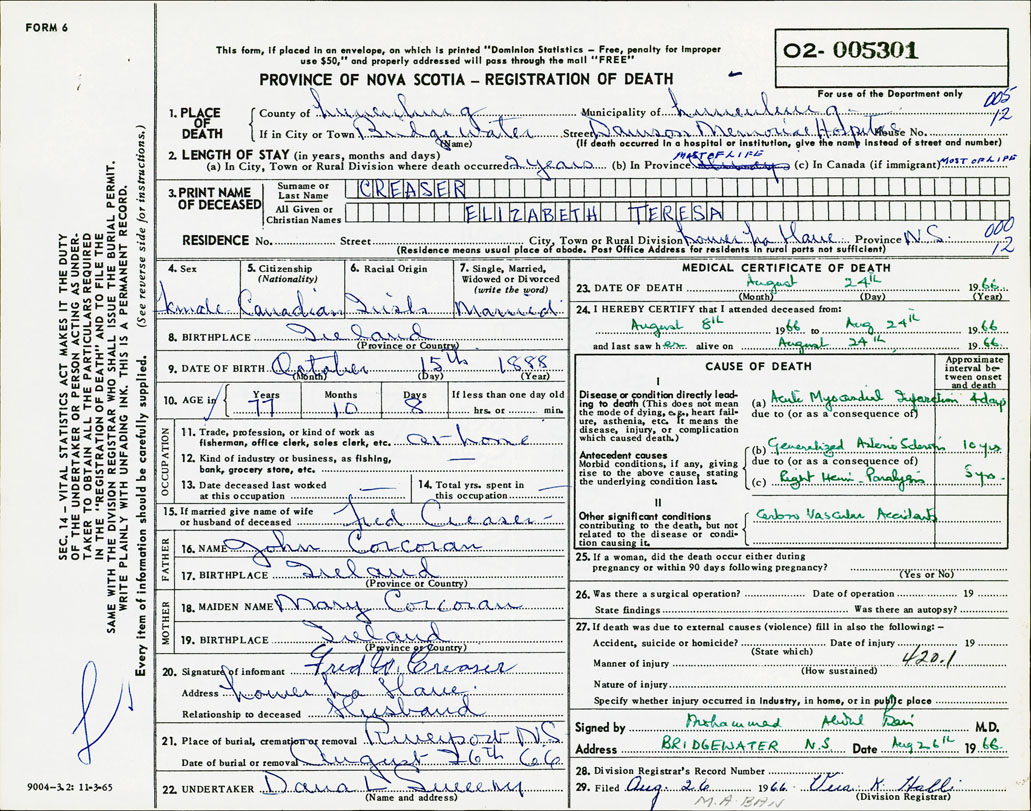 FORM 6
This form, if placed in an envelope, on which is printed "Dominion Statistics – Free, penalty for improper
use $50," and properly addressed will pass through the mail "FREE"
PROVINCE OF NOVA SCOTIA – REGISTRATION OF DEATH
02- 005301
For use of the Department only
005
12
1. PLACE OF DEATH
County of Lunenburg Municipality of Lunenburg
If in City or Town Bridgewater Street Dawson Memorial Hospital House No.
(Name) (If death occurred in a hospital or institution, give the name instead of street and number)
2. LENGTH OF STAY (in years, months and days)
(a) In City, Town or Rural Division where death occurred 2 years (b) In Province MOST OF LIFE (c) In Canada (if immigrant) MOST OF LIFE
3. PRINT NAME OF DECEASED
Surname or Last Name CREASER
All Given or Christian Names ELIZABETH TERESA
000
12
RESIDENCE No. Street City, Town or Rural Division Lower La Have Province N.S.
(Residence means usual place of abode. Post Office Address for residents in rural parts not sufficient)
4. Sex 5. Citizenship (Nationality) 6. Racial Origin 7. Single, Married, Widowed or Divorced (write the word)
Female Canadian Irish Married
8. BIRTHPLACE Ireland
(Province or Country)
9. DATE OF BIRTH October 15th 1888
(Month) (Day) (Year)
10. AGE in Years Months Days If less than one day old
77 10 8 hrs. or min.
OCCUPATION
11. Trade, profession, or kind of work as
fisherman, office clerk, sales clerk, etc. at home
12. Kind of industry or business, as fishing,
bank, grocery store, etc. —
13. Date deceased last worked
at this occupation —
14. Total yrs. spent in
this occupation —
15. If married give name of wife
or husband of deceased Fred Creaser
FATHER
16. NAME John Corcoran
17. BIRTHPLACE Ireland
(Province or Country)
MOTHER
18. MAIDEN NAME Mary Corcoran
19. BIRTHPLACE Ireland
(Province or Country)
20. Signature of informant Fred W. Creaser
Address Lower La Have.
Relationship to deceased Husband
21. Place of burial, cremation or removal Riverport N.S
Date of burial or removal August 26th 66
22. UNDERTAKER Dana L Sweeny
(Name and address)
MEDICAL CERTIFICATE OF DEATH
23. DATE OF DEATH August 24th 1966.
(Month) (Day) (Year)
24. I HEREBY CERTIFY that I attended deceased from:
August 8th 1966 to Aug 24th 1966
and last saw her alive on August 24th, 1966.
CAUSE OF DEATH
Approximate interval between onset and death
I
Disease or condition directly leading to death (This does not mean the mode of dying, e.g., heart failure, asthenia, etc. It means the disease, injury, or complication which caused death.)
(a) Acute Myocardial Infarction 4 days
due to (or as a consequence of)
Antecedent causes
Morbid conditions, if any, giving rise to the above cause, stating the underlying condition last.
(b) Generalized Arterio Sclerosis 10 yrs
due to (or as a consequence of)
(c) Right Hemi-Paralysis 5 yrs.
II
Other significant conditions
contributing to the death, but not related to the disease or condition causing it.
Cerebro Vascular Accidents
25. If a woman, did the death occur either during
pregnancy or within 90 days following pregnancy?
(Yes or No)
26. Was there a surgical operation? Date of operation 19
State findings Was there an autopsy?
27. If death was due to external causes (violence) fill in also the following:–
Accident, suicide or homicide? Date of injury 19
(State which)
420.1
Manner of injury
(How sustained)
Nature of injury
Specify whether injury occurred in Industry, in home, or in public place
Signed by Mohammed M.D.
Address BRIDGEWATER N.S Date Aug 26th 1966.
28. Division Registrar's Record Number
29. Filed Aug. 26 1966.
(Division Registrar)
SEC. 14 – VITAL STATISTICS ACT MAKES IT THE DUTY
OF THE UNDERTAKER OR PERSON ACTING AS UNDERTAKER
TO OBTAIN ALL THE PARTICULARS REQUIRED
IN THE "REGISTRATION OF DEATH" AND TO FILE THE
SAME WITH THE DIVISION REGISTRAR WHO SHALL ISSUE THE BURIAL PERMIT.
WRITE PLAINLY WITH UNFADING INK. THIS IS A PERMANENT RECORD.
Every item of information should be carefully supplied. (See reverse side for instructions.)
9004–3.2: 11-3-65